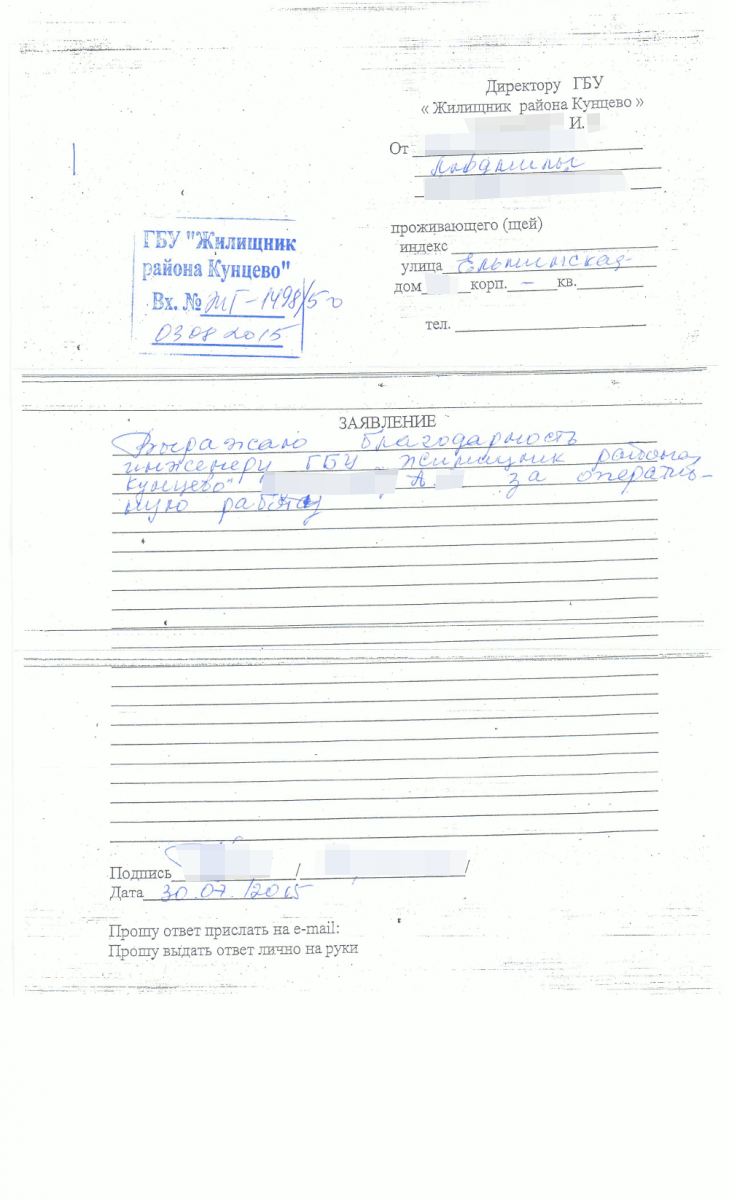 Директору ГБУ
« Жилищник района Кунцево »
И.
От
проживающего (щей)
индекс
улица Ельнинская
дом корп. – кв.
тел.
ГБУ "Жилищник
района Кунцево"
Вх. № ЖГ-1498/5-0
03 08 2015
ЗАЯВЛЕНИЕ
Выражаю благодарность
инженеру ГБУ "Жилищник района
Кунцево" А. за оператив-
ную работу
Подпись / /
Дата 30.07./2015
Прошу ответ прислать на e-mail:
Прошу выдать ответ лично на руки